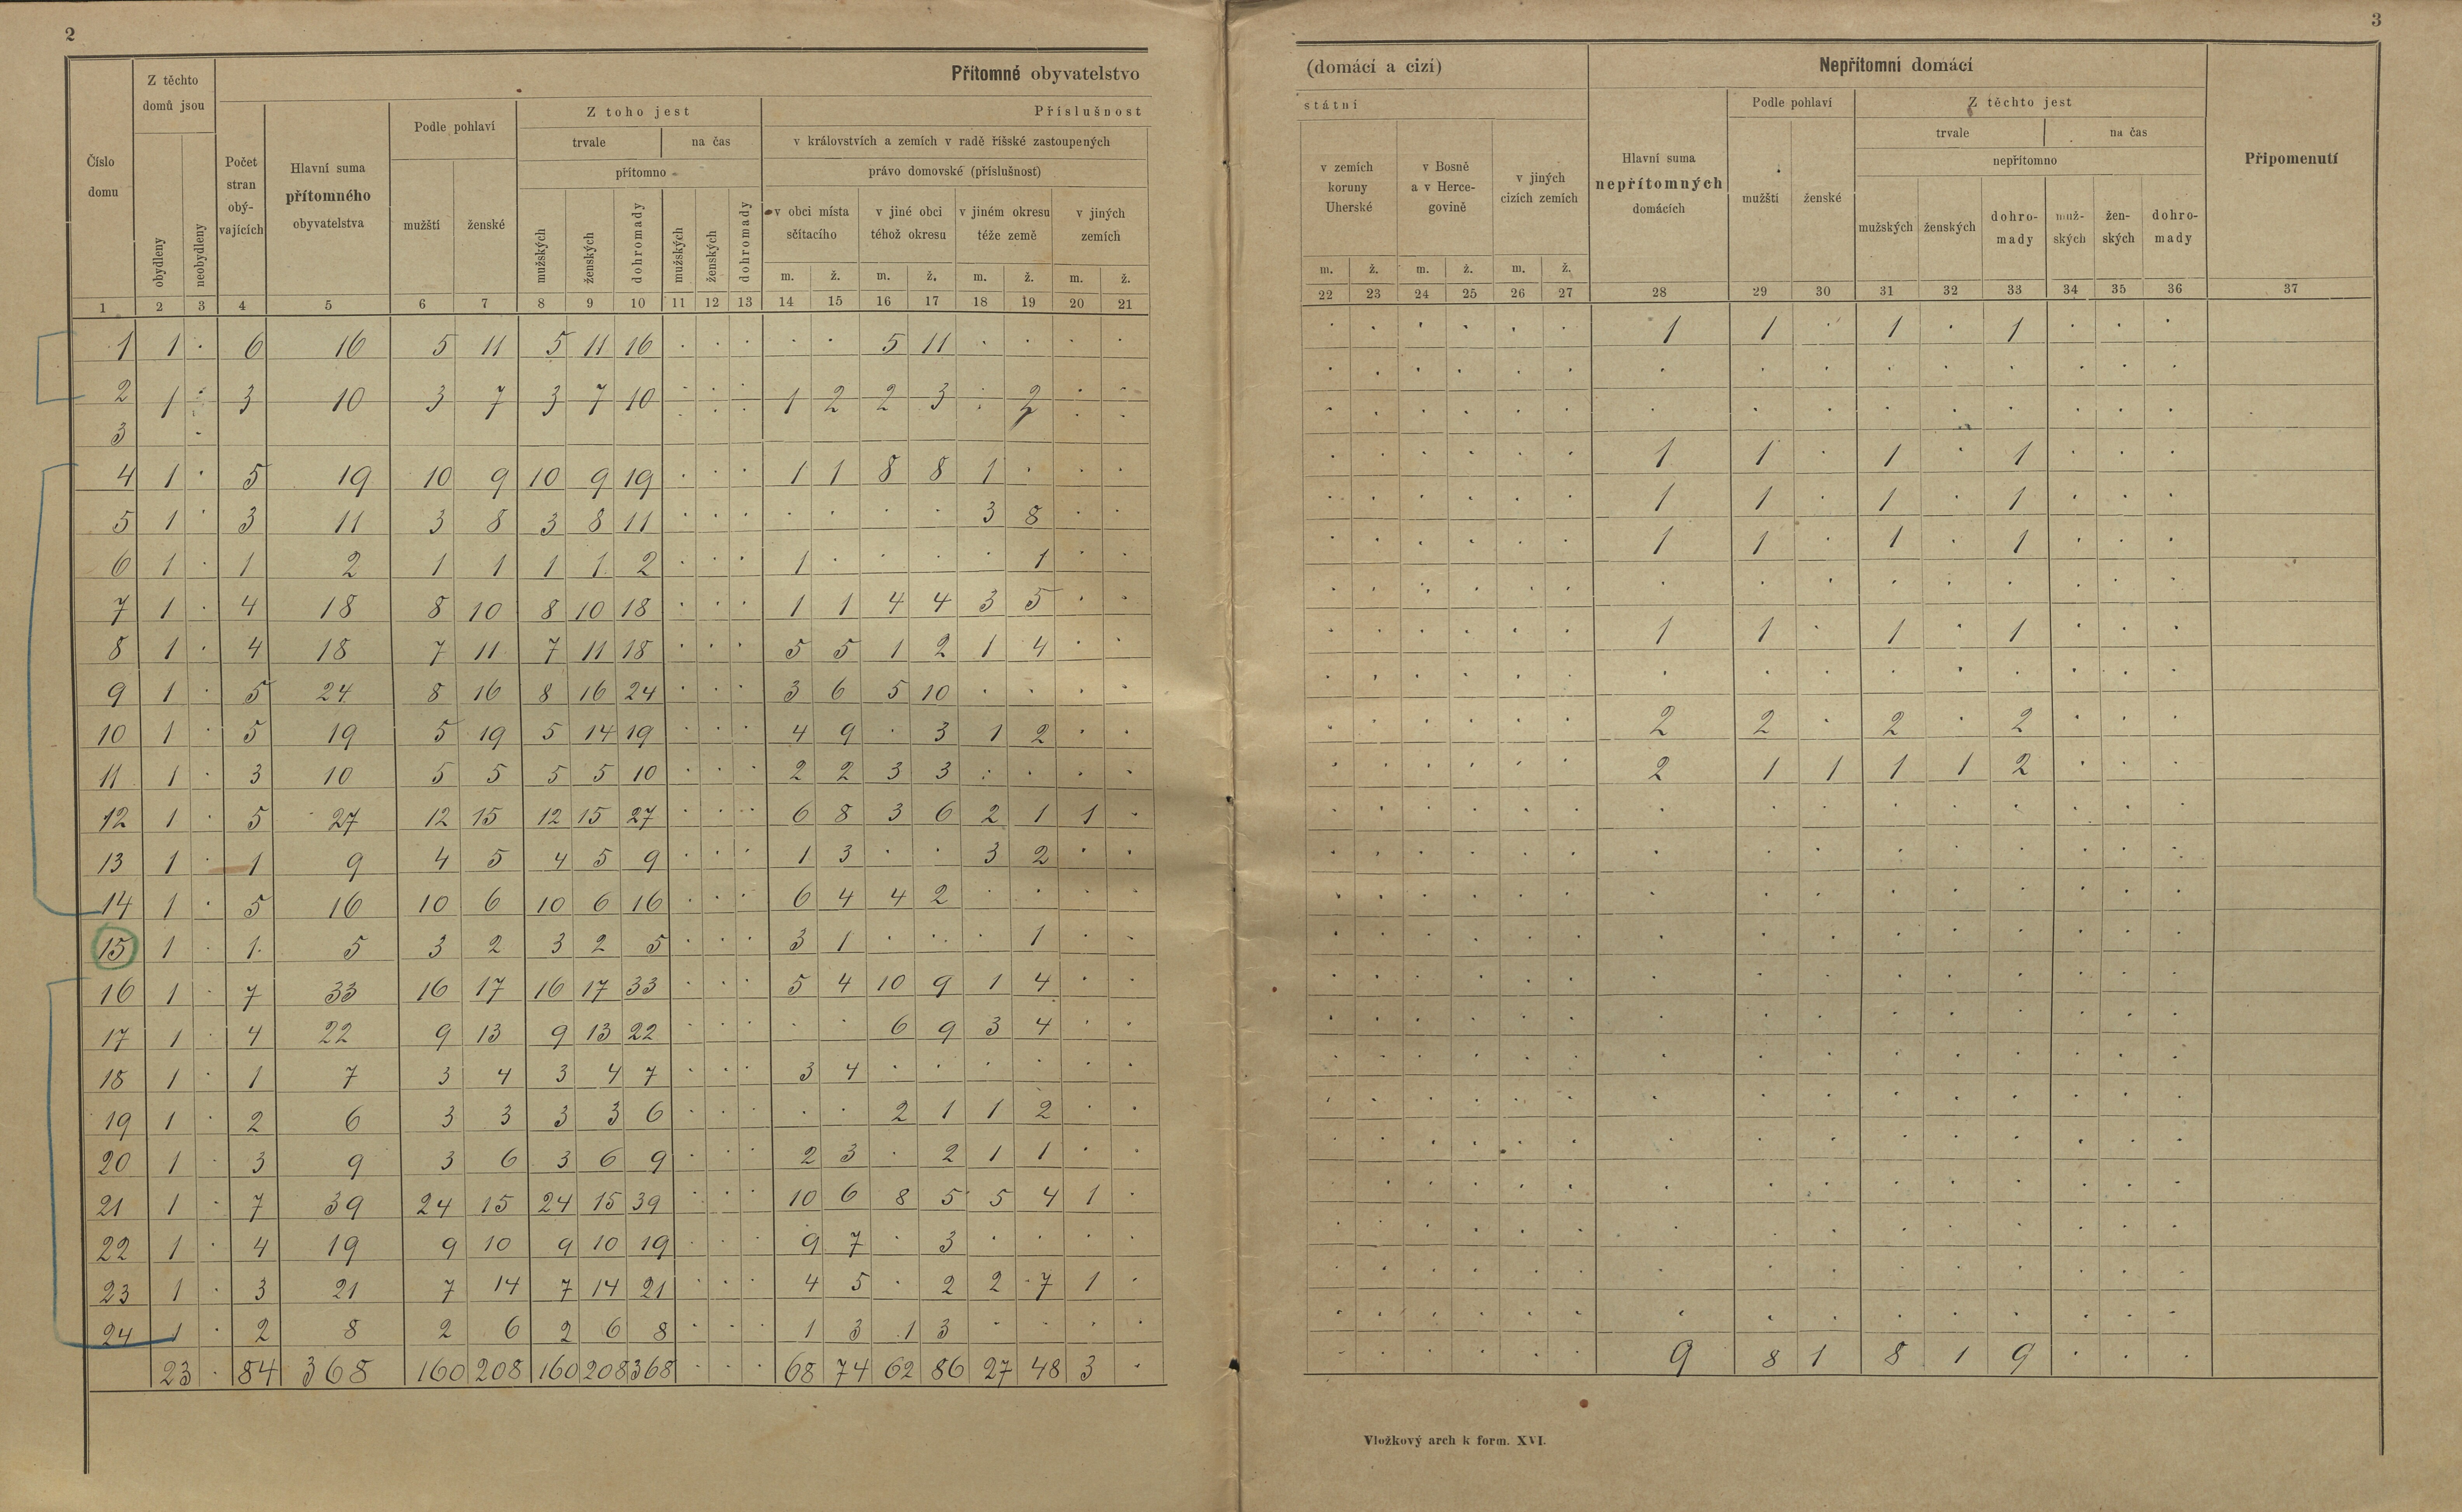 2
3
Přítomné obyvatelstvo
(domácí a cizí)
Nepřítomní domácí
Číslo domu
Z těchto domů jsou
obydleny
neobydleny
Počet stran obý- vajících
Hlavní suma přítomného obyvatelstva
Podle pohlaví
mužští
ženské
Z toho jest
trvale
na čas
přítomno
mužských
ženských
dohromady
mužských
ženských
dohromady
Příslušnost
státní
v královstvích a zemích v radě říšské zastoupených
právo domovské (příslušnost)
v obci místa sčítacího
v jiné obci téhož okresu
v jiném okresu téže země
v jiných zemích
m. ž. m. ž. m. ž. m. ž.
v zemích koruny Uherské
v Bosně a v Herce- govině
v jiných cizích zemích
m. ž. m. ž. m. ž.
Hlavní suma nepřítomných domácích
Podle pohlaví
mužští
ženské
Z těchto jest
trvale
na čas
nepřítomno
mužských
ženských
dohro- mady
muž- ských
žen- ských
dohro- mady
Připomenutí
1 2 3 4 5 6 7 8 9 10 11 12 13 14 15 16 17 18 19 20 21 22 23 24 25 26 27 28 29 30 31 32 33 34 35 36 37
1 1 . 6 16 5 11 5 11 16 . . . . . 5 11 . . . . . . . . . . 1 1 . 1 . 1 . . .
2 1 . 3 10 3 7 3 7 10 . . . 1 2 2 3 . 2 . . . . . . . . . . . . . . . . .
3 . . . . . . . . . . . . . . . .
4 1 . 5 19 10 9 10 9 19 . . . 1 1 8 8 1 . . . . . . . . . 1 1 . 1 . 1 . . .
5 1 . 3 11 3 8 3 8 11 . . . . . . . 3 8 . . . . . . . . 1 1 . 1 . 1 . . .
6 1 . 1 2 1 1 1 1 2 . . . 1 . . . . 1 . . . . . . . . 1 1 . 1 . 1 . . .
7 1 . 4 18 8 10 8 10 18 . . . 1 1 4 4 3 5 . . . . . . . . . . . . . . . . .
8 1 . 4 18 7 11 7 11 18 . . . 5 5 1 2 1 4 . . . . . . . . 1 1 . 1 . 1 . . .
9 1 . 5 24 8 16 8 16 24 . . . 3 6 5 10 . . . . . . . . . . . . . . . . . . .
10 1 . 5 19 5 19 5 14 19 . . . 4 9 . 3 1 2 . . . . . . . . 2 2 . 2 . 2 . . .
11 1 . 3 10 5 5 5 5 10 . . . 2 2 3 3 . . . . . . . . . . 2 1 1 1 1 2 . . .
12 1 . 5 27 12 15 12 15 27 . . . 6 8 3 6 2 1 1 . . . . . . . . . . . . . . . .
13 1 . 1 9 4 5 4 5 9 . . . 1 3 . . 3 2 . . . . . . . . . . . . . . . . .
14 1 . 5 16 10 6 10 6 16 . . . 6 4 4 2 . . . . . . . . . . . . . . . . . . .
15 1 . 1 5 3 2 3 2 5 . . . 3 1 . . . 1 . . . . . . . . . . . . . . . . .
16 1 . 7 33 16 17 16 17 33 . . . 5 4 10 9 1 4 . . . . . . . . . . . . . . . . .
17 1 . 4 22 9 13 9 13 22 . . . . . 6 9 3 4 . . . . . . . . . . . . . . . . .
18 1 . 1 7 3 4 3 4 7 . . . 3 4 . . . . . . . . . . . . . . . . . . . . .
19 1 . 2 6 3 3 3 3 6 . . . . . 2 1 1 2 . . . . . . . . . . . . . . . . .
20 1 . 3 9 3 6 3 6 9 . . . 2 3 . 2 1 1 . . . . . . . . . . . . . . . . .
21 1 . 7 39 24 15 24 15 39 . . . 10 6 8 5 5 4 1 . . . . . . . . . . . . . . . .
22 1 . 4 19 9 10 9 10 19 . . . 9 7 . 3 . . . . . . . . . . . . . . . . . . .
23 1 . 3 21 7 14 7 14 21 . . . 4 5 . 2 2 7 1 . . . . . . . . . . . . . . . .
24 1 . 2 8 2 6 2 6 8 . . . 1 3 1 3 . . . . . . . . . . . . . . . . . . .
23 . 84 368 160 208 160 208 368 . . . 68 74 62 86 27 48 3 . . . . . . . 9 8 1 8 1 9 . . .
Vložkový arch k form. XVI.